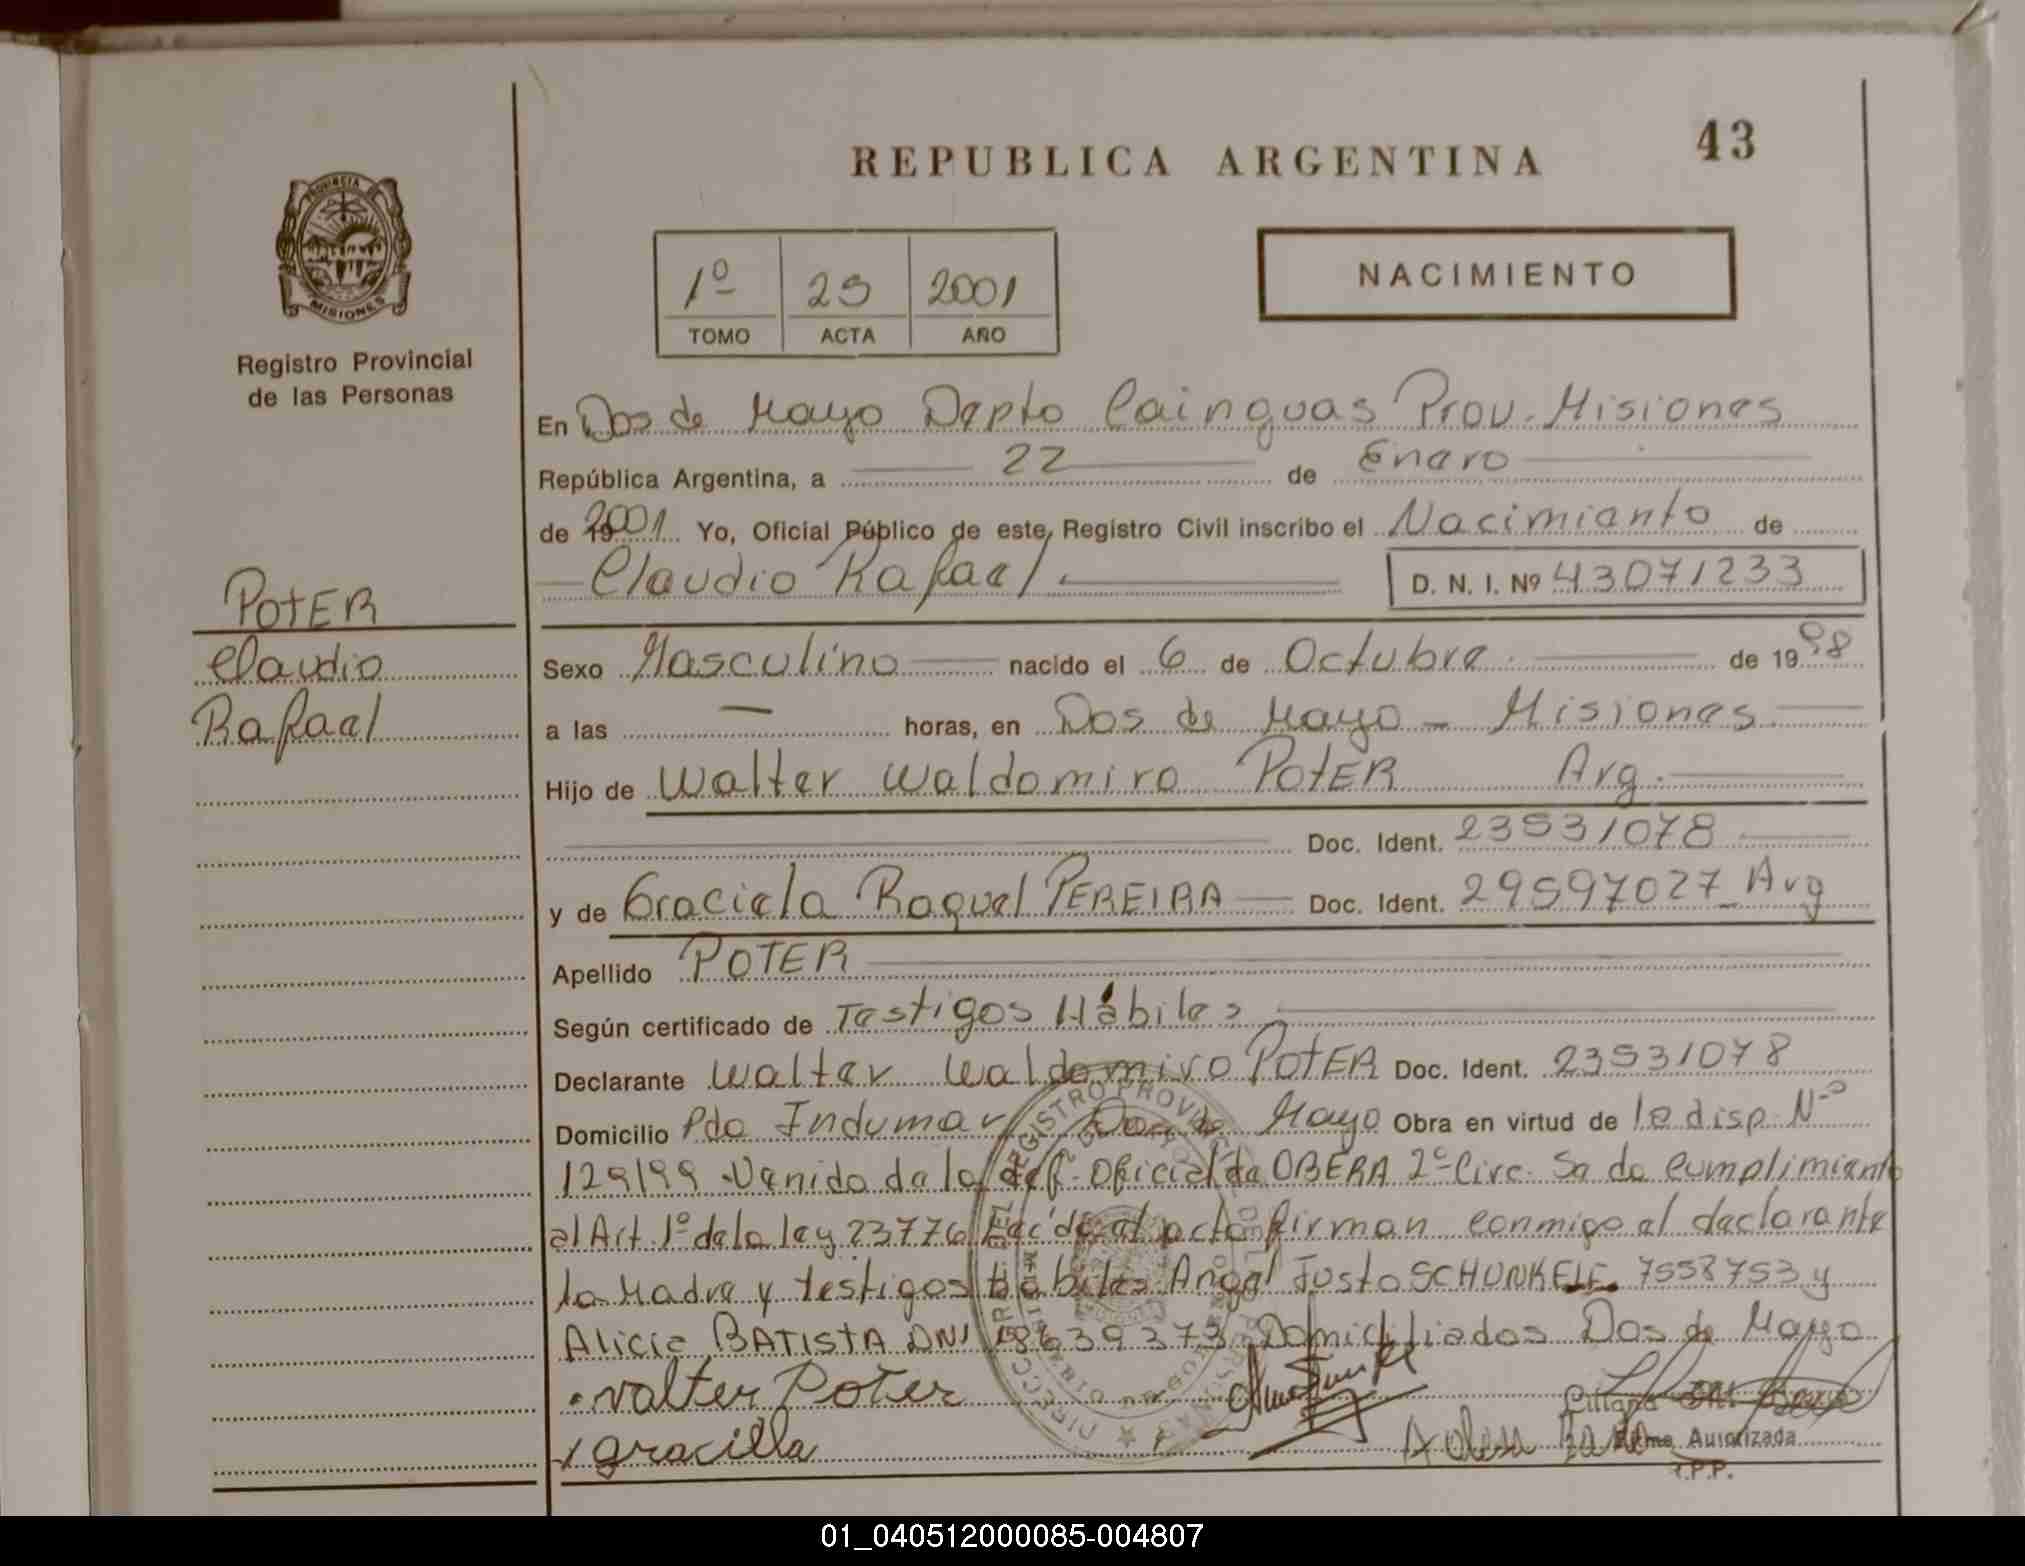 REPUBLICA ARGENTINA
43
PROVINCIA DE
MISIONES
Registro Provincial
de las Personas
1º 29 2001
TOMO ACTA AÑO
NACIMIENTO
En Dos de Mayo Depto Cainguas Prov. Misiones
República Argentina, a 22 de Enero
de 2001 Yo, Oficial Público de este Registro Civil inscribo el Nacimiento de
Claudio Rafael D. N. I. Nº 43071233
POTER
Claudio
Rafael
Sexo Masculino nacido el 6 de Octubre de 1998
a las — horas, en Dos de Mayo - Misiones
Hijo de Walter Waldomiro POTER Arg.
Doc. Ident. 23531078
y de Graciela Raquel PEREIRA Doc. Ident. 29597027 Arg
Apellido POTER
Según certificado de Testigos Hábiles
Declarante Walter Waldomiro POTER Doc. Ident. 23531078
Domicilio Pdo Indumar Dos de Mayo Obra en virtud de la disp. Nº
129/99 Venida de la def. Oficial de OBERA 2º Circ. Se da Cumplimiento
al Art. 1º de la ley 23776 acto firman conmigo el declarante
la Madre y testigos Habiles Angel Justo SCHUNKE 7558753 y
Alicia BATISTA DNI 18639373 Domiciliados Dos de Mayo
Walter Poter
gracilla
Firma Autorizada
R.P.P.
01_040512000085-004807